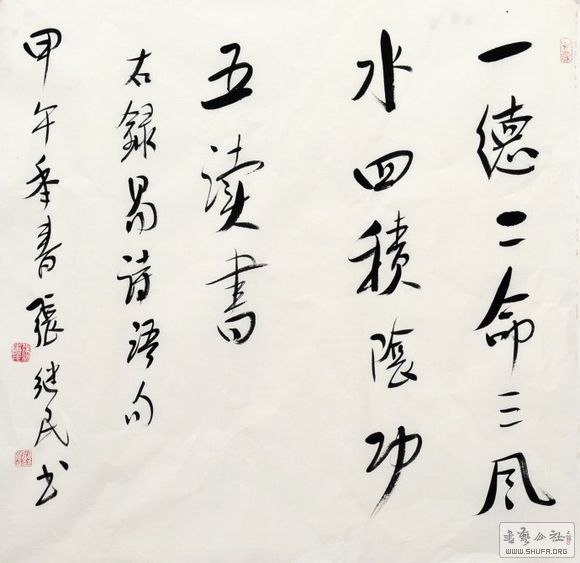 一德二命三风
水四積陰功
五读書
右録易诗语句
甲午季春張继民书
書艺公社
WWW.SHUFA.ORG